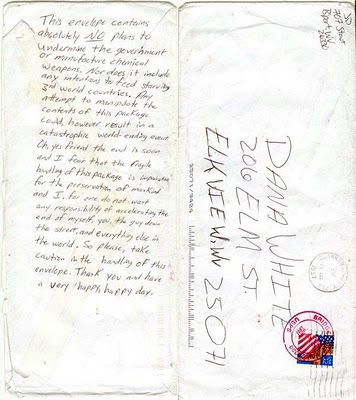 This envelope contains
absolutely NO plans to
undermine the government
or manufacture chemical
weapons. Nor does it include
any intentions to feed starving
3rd world countries. Any
attempt to manipulate the
contents of this package
could, however result in a
catastrophic world-ending event.
Oh, yes friend the end is soon
and I fear that the fragile
handling of this package is imperative
for the preservation of mankind
and I, for one do not want
any responsibility of accelerating the
end of myself, you, the guy down
the street, and everything else in
the world. So please, take
caution in the handling of this
envelope. Thank you and have
a very happy happy day.
DANA WHITE
206 ELM ST.
ELKVIEW, WV 25071
USPS